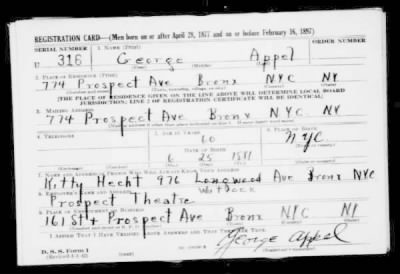 REGISTRATION CARD—(Men born on or after April 28, 1877 and on or before February 16, 1897)
SERIAL NUMBER 1. NAME (Print) ORDER NUMBER
U 316 George Appel
(First) (Middle) (Last)
2. PLACE OF RESIDENCE (Print)
774 Prospect Ave Bronx NYC NY
(Number and street) (Town, township, village, or city) (County) (State)
[THE PLACE OF RESIDENCE GIVEN ON THE LINE ABOVE WILL DETERMINE LOCAL BOARD
JURISDICTION; LINE 2 OF REGISTRATION CERTIFICATE WILL BE IDENTICAL]
3. MAILING ADDRESS
774 Prospect Ave Bronx NYC NY
4. TELEPHONE 5. AGE IN YEARS 6. PLACE OF BIRTH
60 NYC
DATE OF BIRTH
6 25 1881
7. NAME AND ADDRESS OF PERSON WHO WILL ALWAYS KNOW YOUR ADDRESS
Kitty Hecht 976 Longwood Ave Bronx NYC
8. EMPLOYER'S NAME AND ADDRESS
Prospect Theatre
161 St + Prospect Ave Bronx NYC NY
I AFFIRM THAT I HAVE VERIFIED ABOVE ANSWERS AND THAT THEY ARE TRUE.
D. S. S. Form 1 George Appel